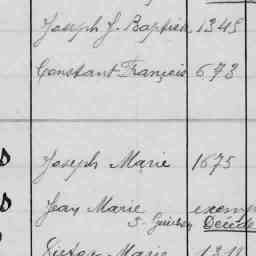 Joseph J. Baptiste 1345
Constant François 673
Joseph Marie 1675
Jean Marie exemp
Décédé
Marie